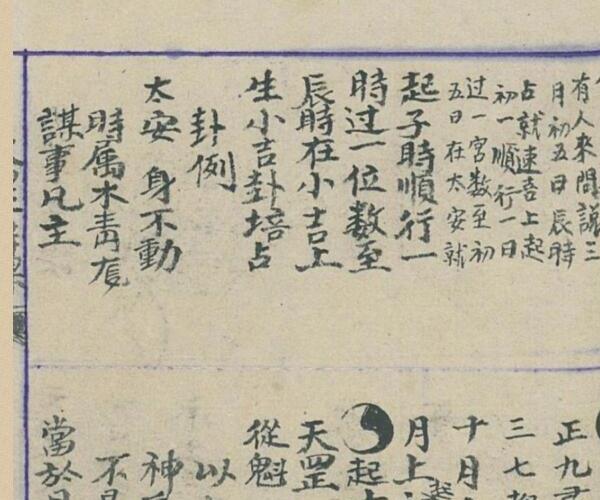 有人來問說三
月初五日辰時
占就速喜上起
初一順行一日
过一宮数至初
五日在太安就
起子時順行一
時过一位数至
辰時在小吉上
生小吉卦培占
卦例
太安 身不動
時属木青
謀事凡主
正九
三七
十月
月上
起
天罡
從魁
以
神
不
當於